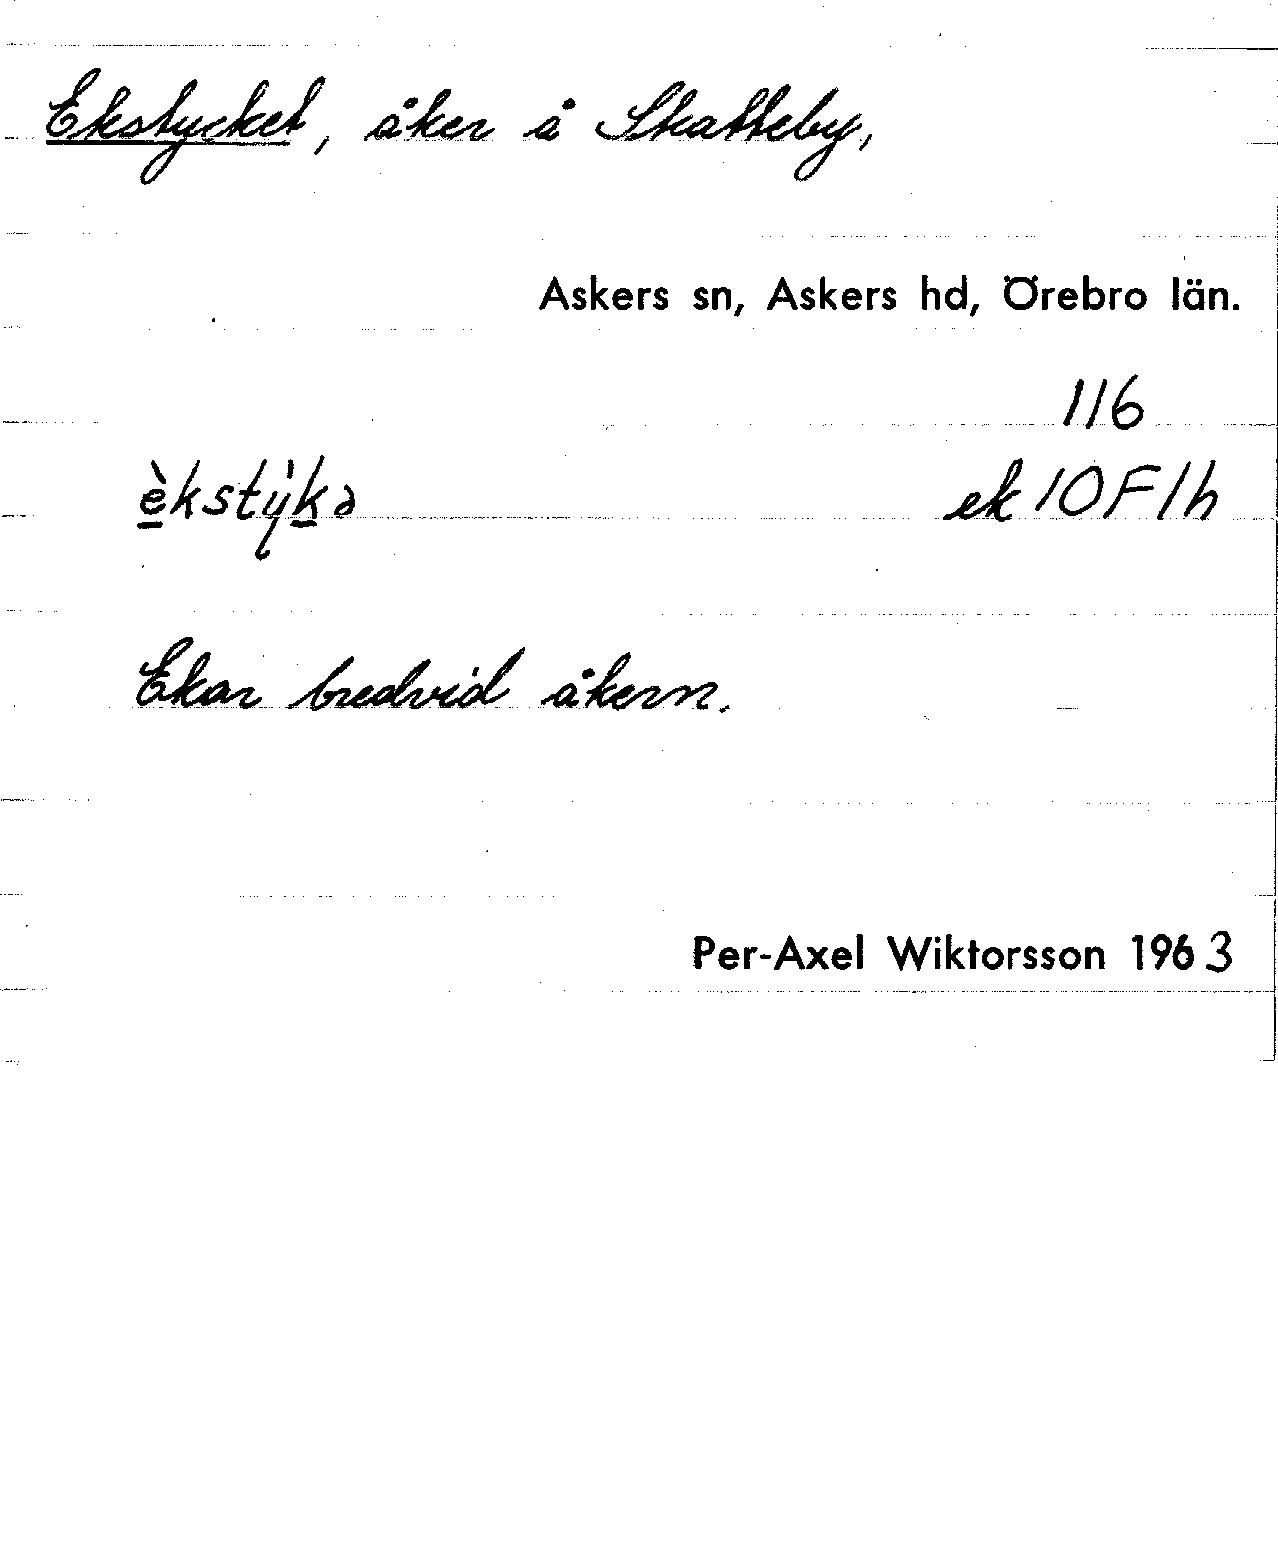 Ekstycket, åker å Skatteby,
Askers sn, Askers hd, Örebro län.
116
èkstỳkə ek 10F1h
Ekar bredvid åkern.
Per-Axel Wiktorsson 1963